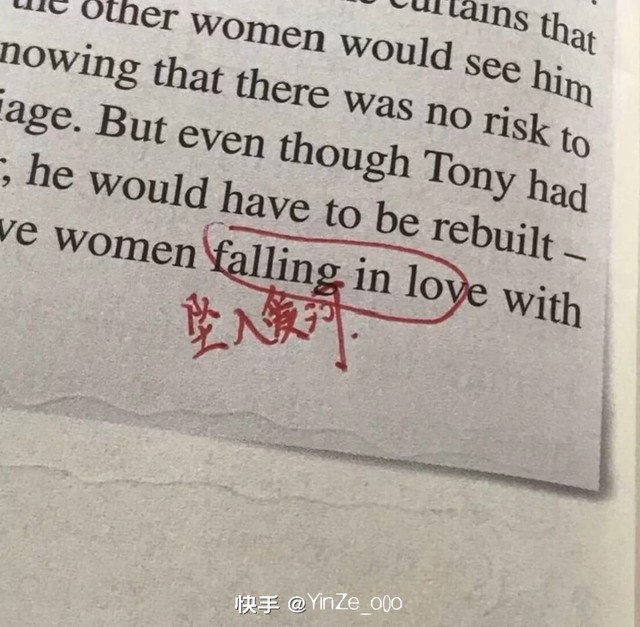 the other women would see him
curtains that
nowing that there was no risk to
iage. But even though Tony had
; he would have to be rebuilt –
ve women falling in love with
坠入爱河.
快手 @YinZe_o0o